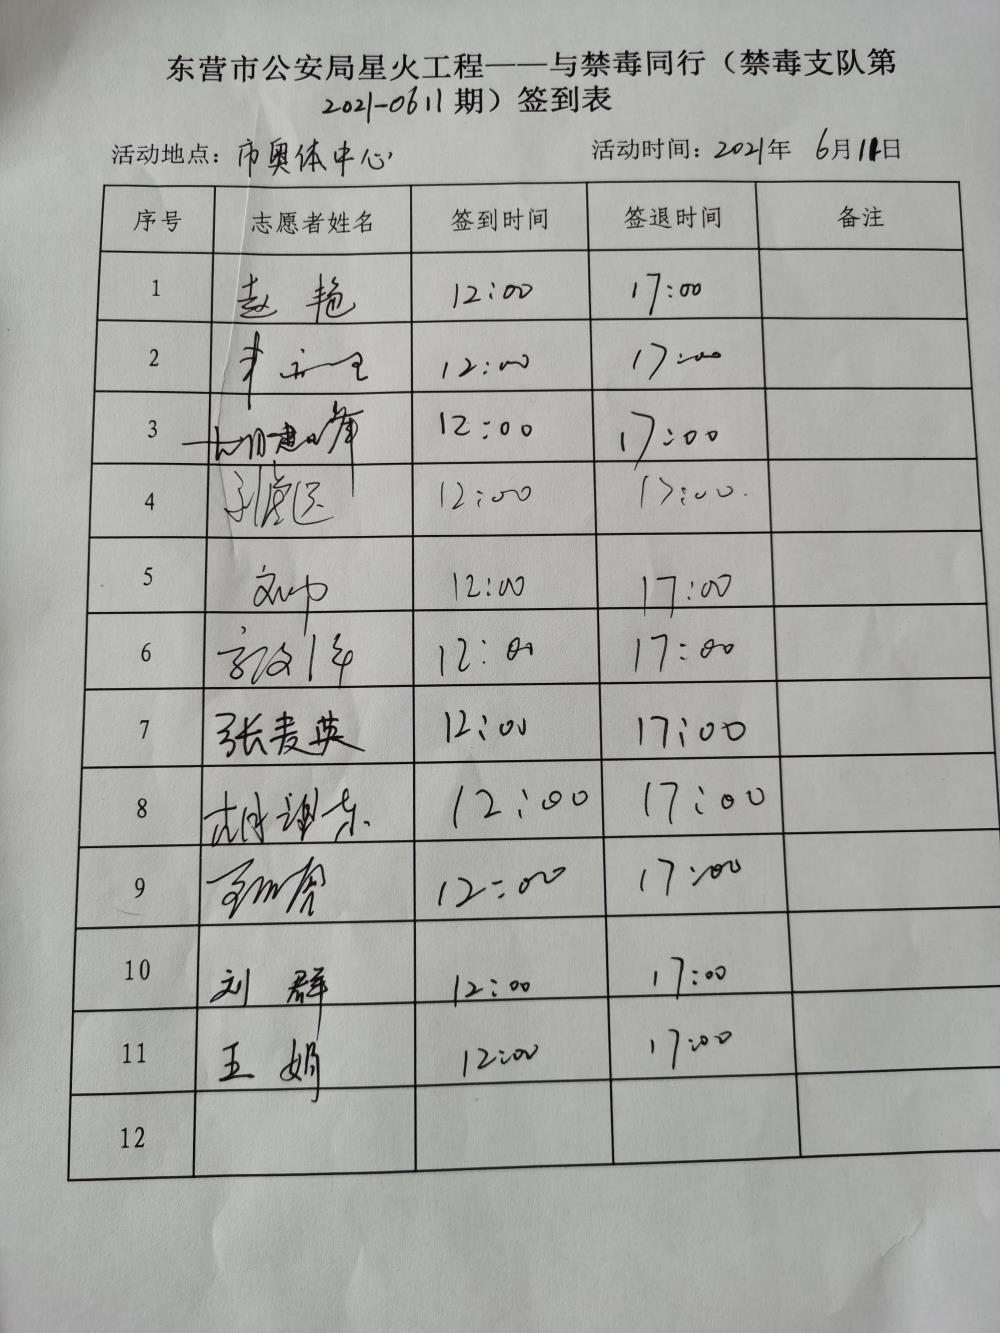 东营市公安局星火工程——与禁毒同行（禁毒支队第
2021-0611期）签到表
活动地点：市奥体中心 活动时间：2021年 6月11日
序号 志愿者姓名 签到时间 签退时间 备注
1 赵艳 12:00 17:00
2 12:00 17:00
3 12:00 17:00
4 12:00 17:00.
5 刘帅 12:00 17:00
6 12:00 17:00
7 张麦英 12:00 17:00
8 12:00 17:00
9 12:00 17:00
10 刘群 12:00 17:00
11 王娟 12:00 17:00
12